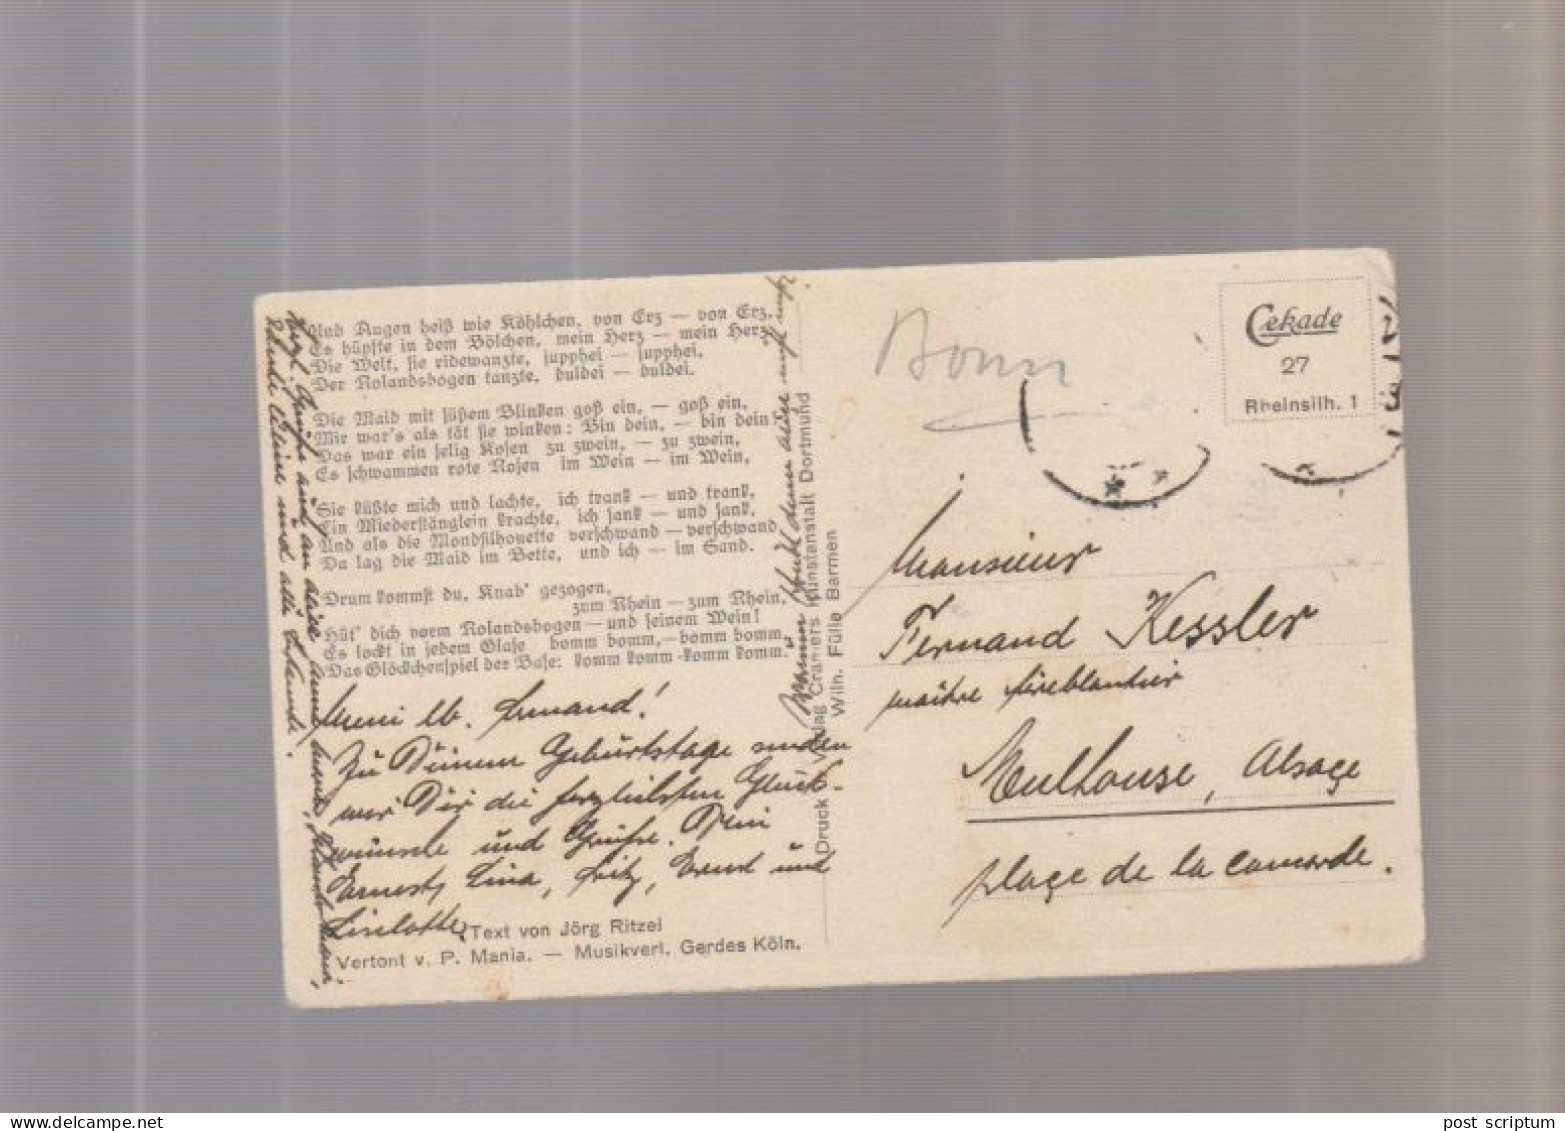 Und Augen heiß wie Köhlchen, von Erz — von Erz,
Es hüpfte in dem Bölchen, mein Herz — mein Herz,
Die Welt, sie ridewanzte, jupphei — jupphei,
Der Rolandsbogen tanzte, duldei — duldei.
Die Maid mit süßem Blinken goß ein, — goß ein,
Mir war's als tät sie winken: Bin dein, — bin dein!
Das war ein selig Kosen zu zwein, — zu zwein,
Es schwammen rote Rosen im Wein — im Wein,
Sie küßte mich und lachte, ich trank — und trank,
Ein Miederstänglein krachte, ich sank — und sank,
Und als die Mondsilhouette verschwand — verschwand
Da lag die Maid im Bette, und ich — im Sand.
Drum kommst du, Knab' gezogen,
zum Rhein — zum Rhein,
Hüt' dich vorm Rolandsbogen — und seinem Wein!
Es lockt in jedem Glase bomm bomm, — bomm bomm
Das Glöckchenspiel der Base: komm komm - komm komm.
Mein lb. Fernand!
Zu Deinem Geburtstage senden
wir Dir die herzlichsten Glück-
wünsche und Grüße. Dein
Ernest, Lina, Fritz, Ernst und
Liselotte.
Text von Jörg Ritzel
Vertont v. P. Mania. — Musikverl. Gerdes Köln.
Herzl. Grüße auch an
und alle
Druck Verlag Cramers Kunstanstalt Dortmund
Wilh. Fülle Barmen
Bonn
Cekade
27
Rheinsilh. 1
Monsieur
Fernand Kessler
maître ferblantier
Mulhouse, Alsace
place de la concorde.
post scriptum